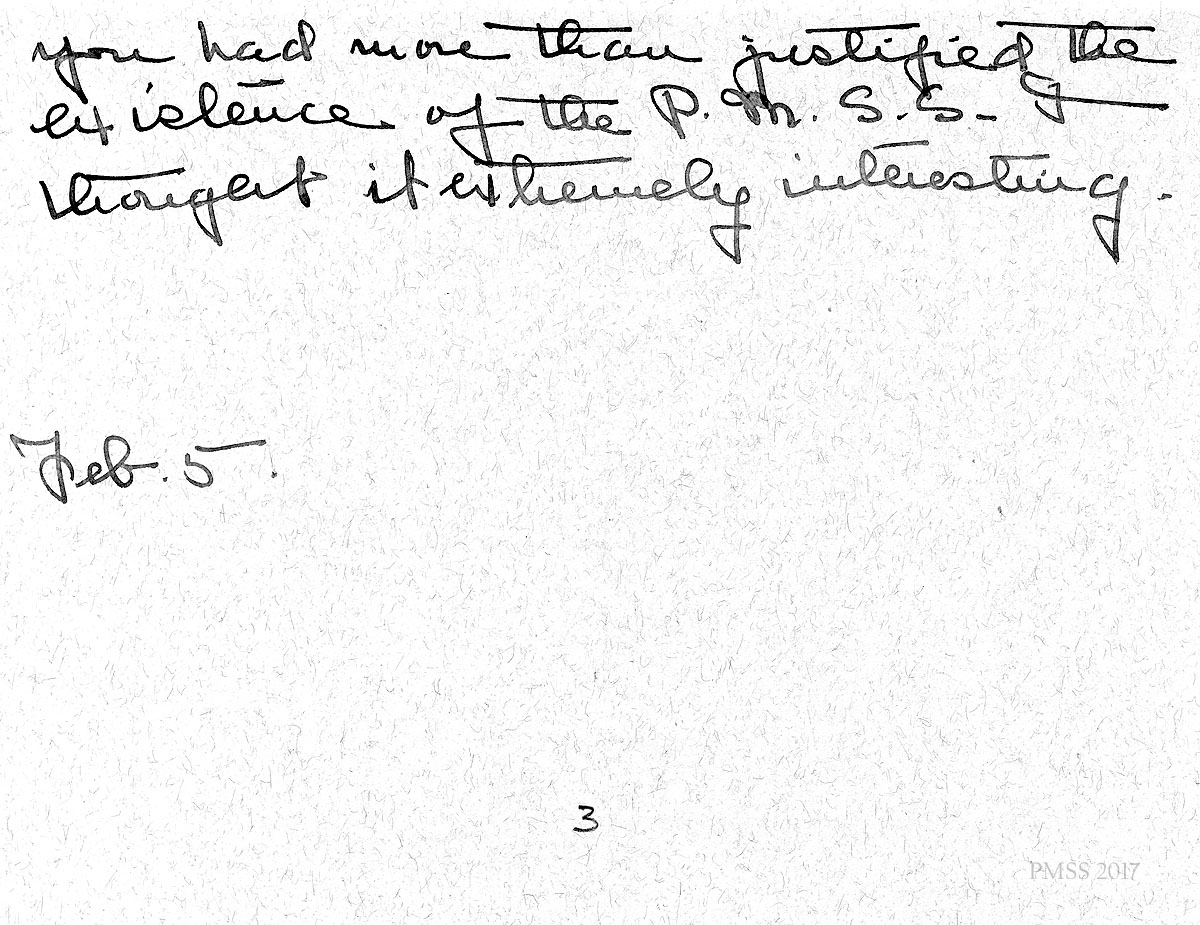 you had more than justified the
existence of the P. M. S. S. I
thought it extremely interesting.
Feb. 5.
3
PMSS 2017